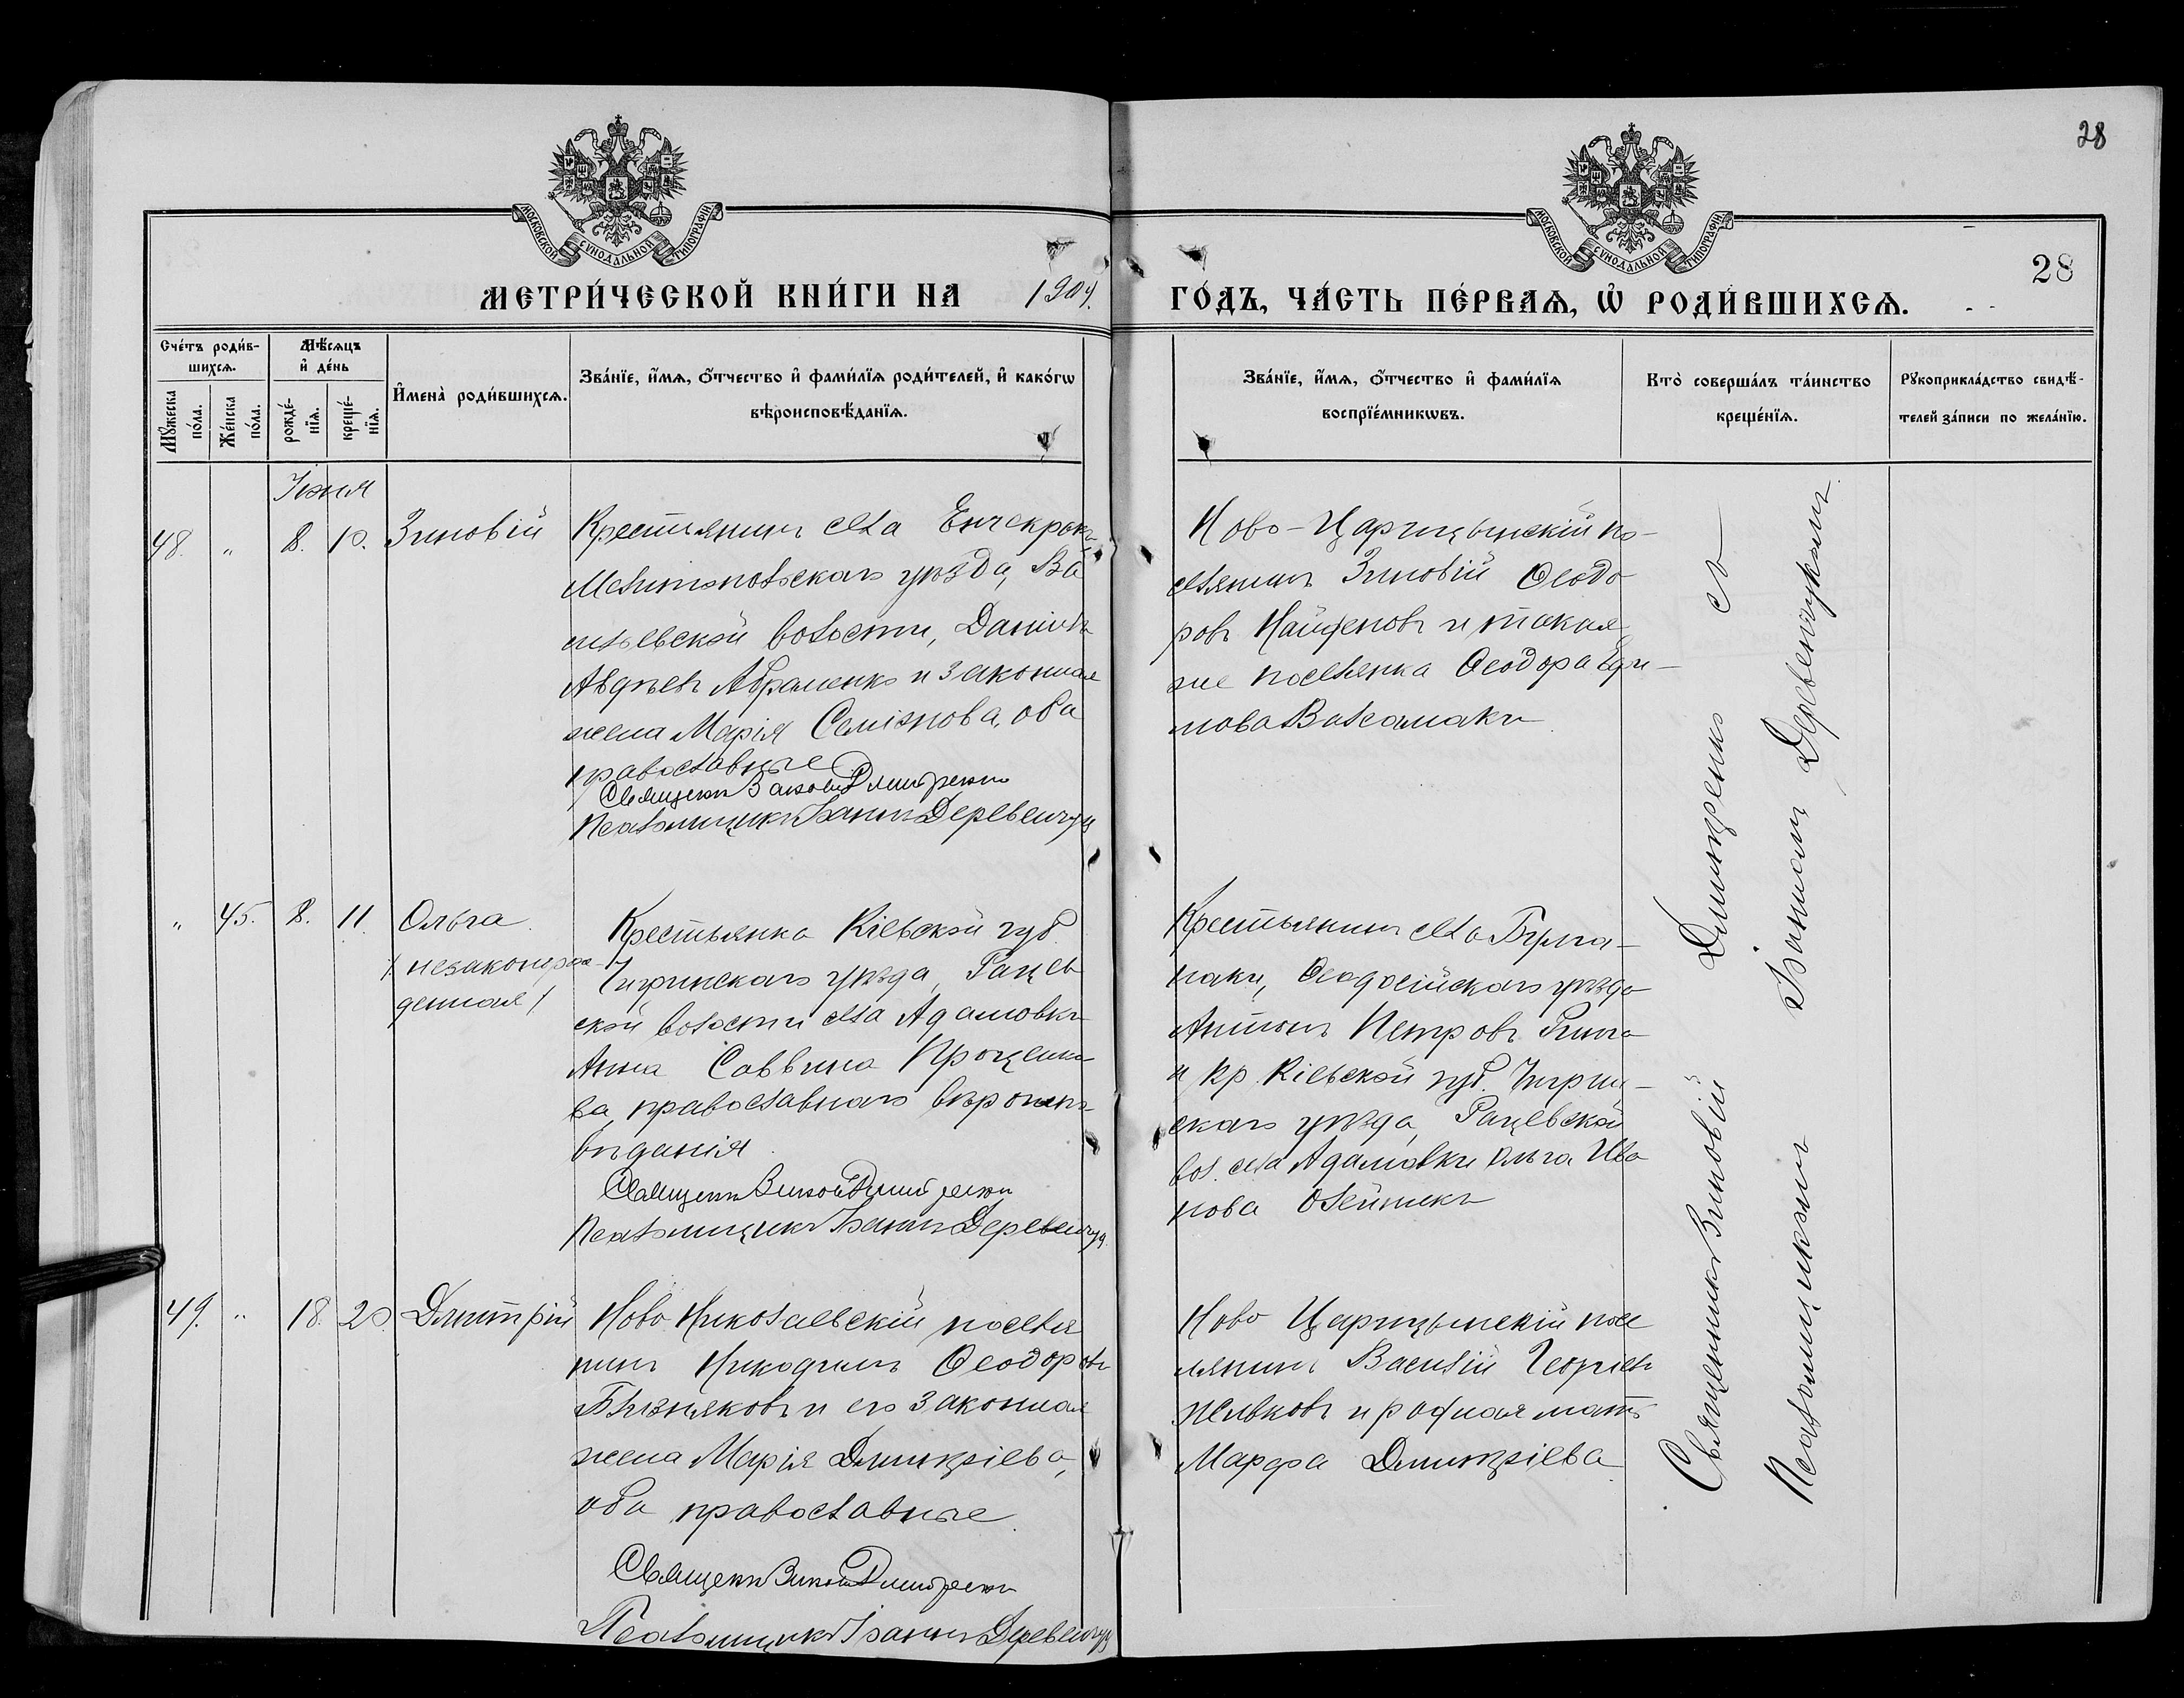 28
МОСКОВСКОЙ СѴНОДАЛЬНОЙ ТИПОГРАФІИ
МОСКОВСКОЙ СѴНОДАЛЬНОЙ ТИПОГРАФІИ
28
МЕТРИ́ЧЕСКОЙ КНИ́ГИ НА 1904.
ГО́ДЪ, ЧА́СТЬ ПЕ́РВАѦ, Ѡ҆ РОДИ́ВШИХСѦ.
Сче́тъ роди́в-
шихсѧ.
Мꙋжеска по́ла.
Же́нска по́ла.
Мѣ́сѧцъ
и҆ де́нь
рожде́-
нїѧ.
креще́-
нїѧ.
И҆мена̀ роди́вшихсѧ.
Зва́нїе, и҆́мѧ, ѻ҆́тчество и҆ фами́лїѧ роди́телей, и҆ како́гѡ
вѣроисповѣ́данїѧ.
Зва́нїе, и҆́мѧ, ѻ҆́тчество и҆ фами́лїѧ
воспрїе́мникѡвъ.
Кто̀ соверша́лъ та́инство
креще́нїѧ.
Рꙋкоприкла́дство свидѣ́-
телей за́писи по жела́нїю.
Іюня
48. " 8. 10. Зиновій
Крестьянинъ села
Мелитопольскаго уѣзда, Ва
сильевской волости, Даніилъ
Авдѣевъ Абраменко и законная
жена Марія Семіонова, оба
православные
Священникъ Зиновій Дмитренко
Псаломщикъ Іоаннъ Деревенчук
Ново-Царицынскій по-
селянинъ Зиновій Ѳеодо
ровъ Найденовъ и такая
же поселянка Ѳеодора
" 45. 8. 11. Ольга
/незаконорож-
денная/
Крестьянка Кіевской губ.
Чигринскаго уѣзда, Рацев
ской волости села Адамовки
Анна Саввина Проценко
ва, православнаго вѣроиспо
вѣданія.
Священникъ Зиновій Дмитренко
Псаломщикъ Іоаннъ Деревенчук
Крестьянинъ села
Ѳеодосійскаго уѣзда
Антонъ Петровъ
и кр. Кіевской губ. Чигрин-
скаго уѣзда, Рацевской
вол. села Адамовки Ольга Ива
нова Олейникъ
49. " 18. 20. Дмитрій
Ново Николаевскій поселя
нинъ Никодимъ Ѳеодоровъ
Близняковъ и его законная
жена Марія Димитріева,
оба православные.
Священникъ Зиновій Дмитренко
Псаломщикъ Іоаннъ Деревенчук
Ново Царицынскій посе
лянинъ Василій Георгіевъ
Желвковъ и родная мать
Марфа Димитріева
Священникъ Зиновій Димитренко съ
Псаломщикомъ Іоанномъ Деревенчукомъ.